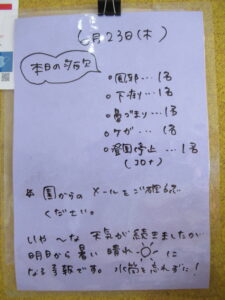 6月23日(木)
本日の病欠
○風邪…1名
○下痢…1名
○鼻づまり…1名
○ケガ…1名
○登園停止…1名
(コロナ)
※園からのメールをご確認
ください。
いや〜な天気が続きましたが
明日から暑い晴れ に
なる予報です。水筒を忘れずに!